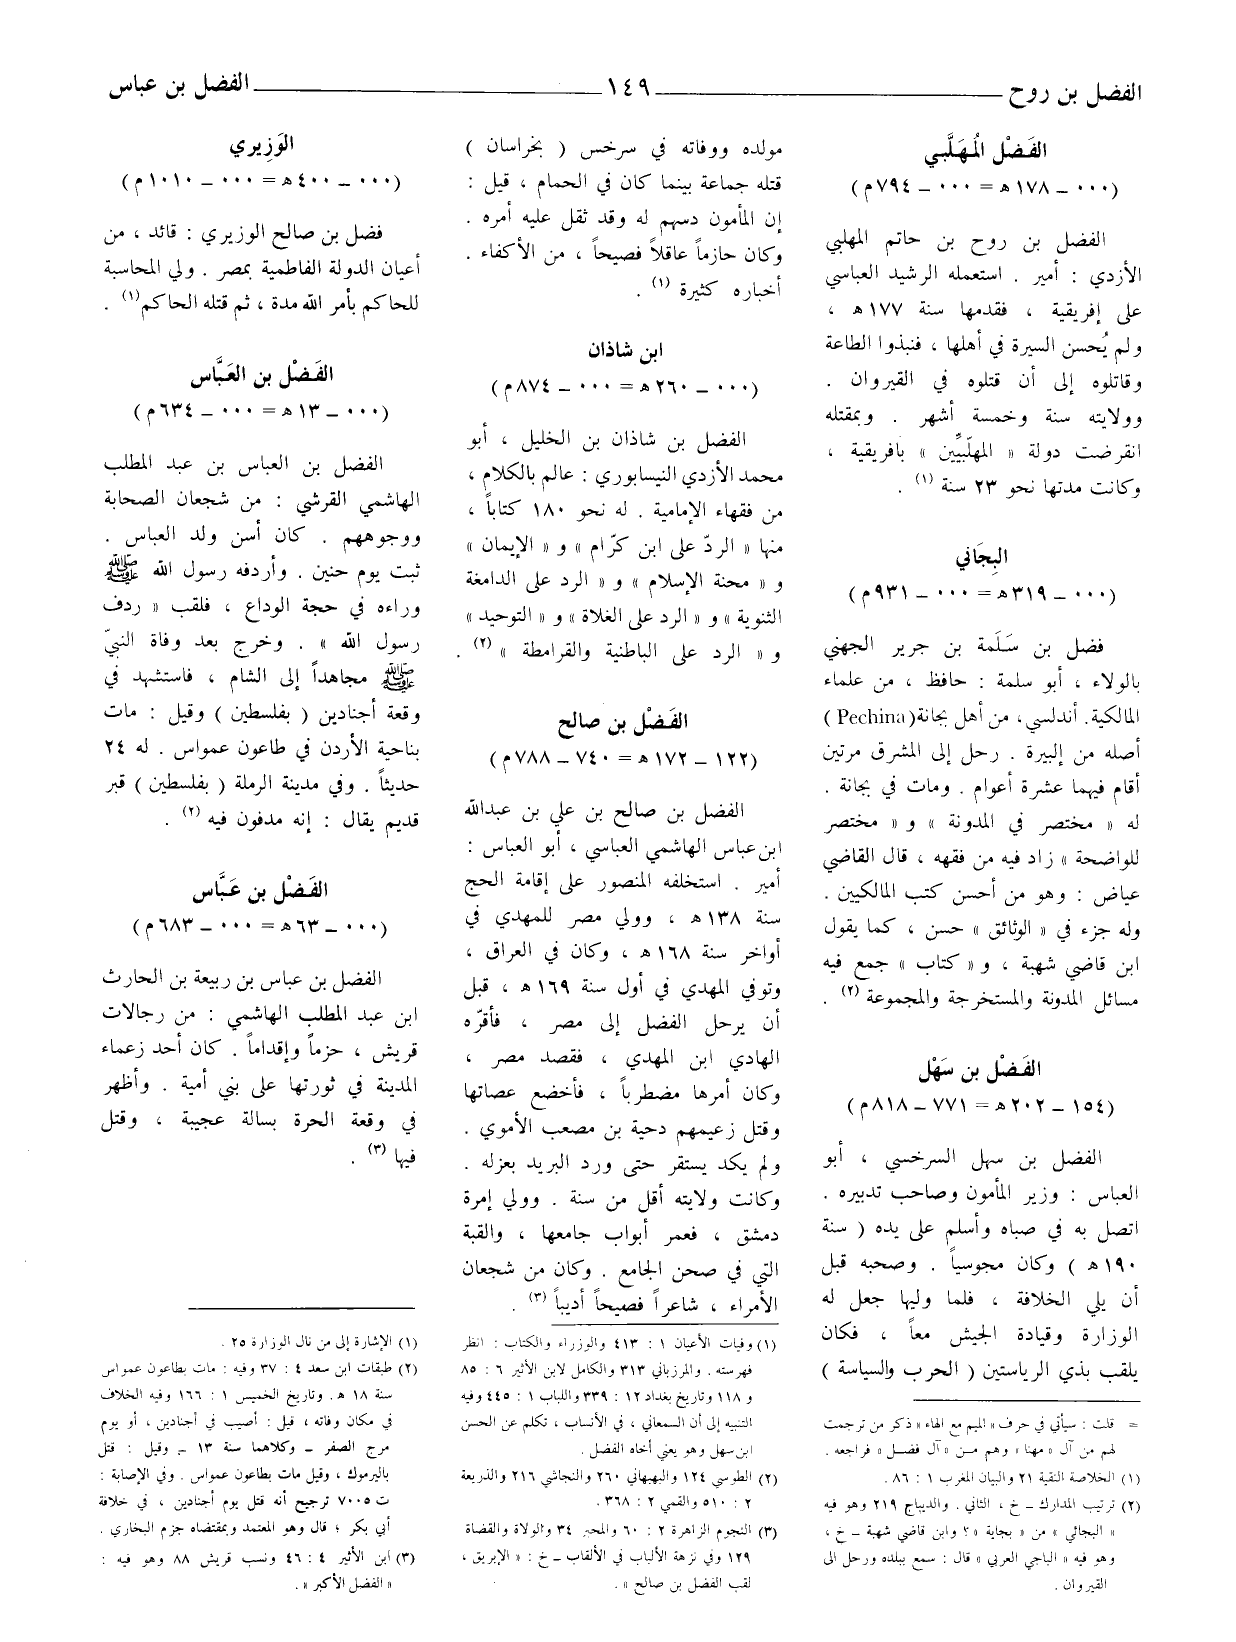 الفضل بن روح ــــــ ١٤٩ ــــــ الفضل بن عباس
الفَضْل المُهَلَّبي
(٠٠٠ – ١٧٨ ه = ٠٠٠ – ٧٩٤ م)
الفضل بن روح بن حاتم المهلبي
الأزدي : أمير . استعمله الرشيد العباسي
على إفريقية ، فقدمها سنة ١٧٧ ه ،
ولم يُحسن السيرة في أهلها ، فنبذوا الطاعة
وقاتلوه إلى أن قتلوه في القيروان .
وولايته سنة وخمسة أشهر . وبمقتله
انقرضت دولة « المهلّبيِّين » بافريقية ،
وكانت مدتها نحو ٢٣ سنة (١) .
البِجَاني
(٠٠٠ – ٣١٩ ه = ٠٠٠ – ٩٣١ م)
فضل بن سَلَمة بن جرير الجهني
بالولاء ، أبو سلمة : حافظ ، من علماء
المالكية. أندلسي، من أهل بجانة (Pechina)
أصله من إلبيرة . رحل إلى المشرق مرتين
أقام فيهما عشرة أعوام . ومات في بجانة .
له « مختصر في المدونة » و « مختصر
للواضحة » زاد فيه من فقهه ، قال القاضي
عياض : وهو من أحسن كتب المالكيين .
وله جزء في « الوثائق » حسن ، كما يقول
ابن قاضي شهبة ، و « كتاب » جمع فيه
مسائل المدونة والمستخرجة والمجموعة (٢) .
الفَضْل بن سَهْل
(١٥٤ – ٢٠٢ ه = ٧٧١ – ٨١٨ م)
الفضل بن سهل السرخسي ، أبو
العباس : وزير المأمون وصاحب تدبيره .
اتصل به في صباه وأسلم على يده ( سنة
١٩٠ ه ) وكان مجوسياً . وصحبه قبل
أن يلي الخلافة ، فلما وليها جعل له
الوزارة وقيادة الجيش معاً ، فكان
يلقب بذي الرياستين ( الحرب والسياسة )
= قلت : سيأتي في حرف « الميم مع الهاء » ذكر من ترجمت
لهم من آل « مهنا » وهم من « آل فضل » فراجعه .
(١) الخلاصة النقية ٢١ والبيان المغرب ١ : ٨٦ .
(٢) ترتيب المدارك – خ ، الثاني . والديباج ٢١٩ وهو فيه
« البجائي » من « بجاية »؟ وابن قاضي شهبة – خ ،
وهو فيه « الباجي العربي » قال : سمع ببلده ورحل الى
القيروان .
مولده ووفاته في سرخس ( بخراسان )
قتله جماعة بينما كان في الحمام ، قيل :
إن المأمون دسهم له وقد ثقل عليه أمره .
وكان حازماً عاقلاً فصيحاً ، من الأكفاء .
أخباره كثيرة (١) .
ابن شاذان
(٠٠٠ – ٢٦٠ ه = ٠٠٠ – ٨٧٤ م)
الفضل بن شاذان بن الخليل ، أبو
محمد الأزدي النيسابوري : عالم بالكلام ،
من فقهاء الإمامية . له نحو ١٨٠ كتاباً ،
منها « الردّ على ابن كرّام » و « الإيمان »
و « محنة الإسلام » و « الرد على الدامغة
الثنوية » و « الرد على الغلاة » و « التوحيد »
و « الرد على الباطنية والقرامطة » (٢) .
الفَضْل بن صالح
(١٢٢ – ١٧٢ ه = ٧٤٠ – ٧٨٨ م)
الفضل بن صالح بن علي بن عبدالله
ابن عباس الهاشمي العباسي ، أبو العباس :
أمير . استخلفه المنصور على إقامة الحج
سنة ١٣٨ ه ، وولي مصر للمهدي في
أواخر سنة ١٦٨ ه ، وكان في العراق ،
وتوفي المهدي في أول سنة ١٦٩ ه ، قبل
أن يرحل الفضل إلى مصر ، فأقرّه
الهادي ابن المهدي ، فقصد مصر ،
وكان أمرها مضطرباً ، فأخضع عصاتها
وقتل زعيمهم دحية بن مصعب الأموي .
ولم يكد يستقر حتى ورد البريد بعزله .
وكانت ولايته أقل من سنة . وولي إمرة
دمشق ، فعمر أبواب جامعها ، والقبة
التي في صحن الجامع . وكان من شجعان
الأمراء ، شاعراً فصيحاً أديباً (٣) .
(١) وفيات الأعيان ١ : ٤١٣ والوزراء والكتاب : انظر
فهرسته . والمرزباني ٣١٣ والكامل لابن الأثير ٦ : ٨٥
و ١١٨ وتاريخ بغداد ١٢ : ٣٣٩ واللباب ١ : ٤٤٥ وفيه
التنبيه إلى أن السمعاني ، في الأنساب ، تكلم عن الحسن
ابن سهل وهو يعني أخاه الفضل .
(٢) الطوسي ١٢٤ والبهبهاني ٢٦٠ والنجاشي ٢١٦ والذريعة
٢ : ٥١٠ والقمي ٢ : ٣٦٨ .
(٣) النجوم الزاهرة ٢ : ٦٠ والمحبر ٣٤ والولاة والقضاة
١٢٩ وفي نزهة الألباب في الألقاب – خ : « الإبريق ،
لقب الفضل بن صالح » .
الوَزِيري
(٠٠٠ – ٤٠٠ ه = ٠٠٠ – ١٠١٠ م)
فضل بن صالح الوزيري : قائد ، من
أعيان الدولة الفاطمية بمصر . ولي المحاسبة
للحاكم بأمر الله مدة ، ثم قتله الحاكم (١) .
الفَضْل بن العَبَّاس
(٠٠٠ – ١٣ ه = ٠٠٠ – ٦٣٤ م)
الفضل بن العباس بن عبد المطلب
الهاشمي القرشي : من شجعان الصحابة
ووجوههم . كان أسن ولد العباس .
ثبت يوم حنين . وأردفه رسول الله ﷺ
وراءه في حجة الوداع ، فلقب « ردف
رسول الله » . وخرج بعد وفاة النبيّ
ﷺ مجاهداً إلى الشام ، فاستشهد في
وقعة أجنادين ( بفلسطين ) وقيل : مات
بناحية الأردن في طاعون عمواس . له ٢٤
حديثاً . وفي مدينة الرملة ( بفلسطين ) قبر
قديم يقال : إنه مدفون فيه (٢) .
الفَضْل بن عَبَّاس
(٠٠٠ – ٦٣ ه = ٠٠٠ – ٦٨٣ م)
الفضل بن عباس بن ربيعة بن الحارث
ابن عبد المطلب الهاشمي : من رجالات
قريش ، حزماً وإقداماً . كان أحد زعماء
المدينة في ثورتها على بني أمية . وأظهر
في وقعة الحرة بسالة عجيبة ، وقتل
فيها (٣) .
(١) الإشارة إلى من نال الوزارة ٢٥ .
(٢) طبقات ابن سعد ٤ : ٣٧ وفيه : مات بطاعون عمواس
سنة ١٨ ه . وتاريخ الخميس ١ : ١٦٦ وفيه الخلاف
في مكان وفاته ، قيل : أصيب في أجنادين ، أو يوم
مرج الصفر – وكلاهما سنة ١٣ – وقيل : قتل
باليرموك ، وقيل مات بطاعون عمواس . وفي الإصابة :
ت ٧٠٠٥ ترجيح أنه قتل يوم أجنادين ، في خلافة
أبي بكر ؛ قال وهو المعتمد وبمقتضاه جزم البخاري .
(٣) ابن الأثير ٤ : ٤٦ ونسب قريش ٨٨ وهو فيه :
« الفضل الأكبر » .